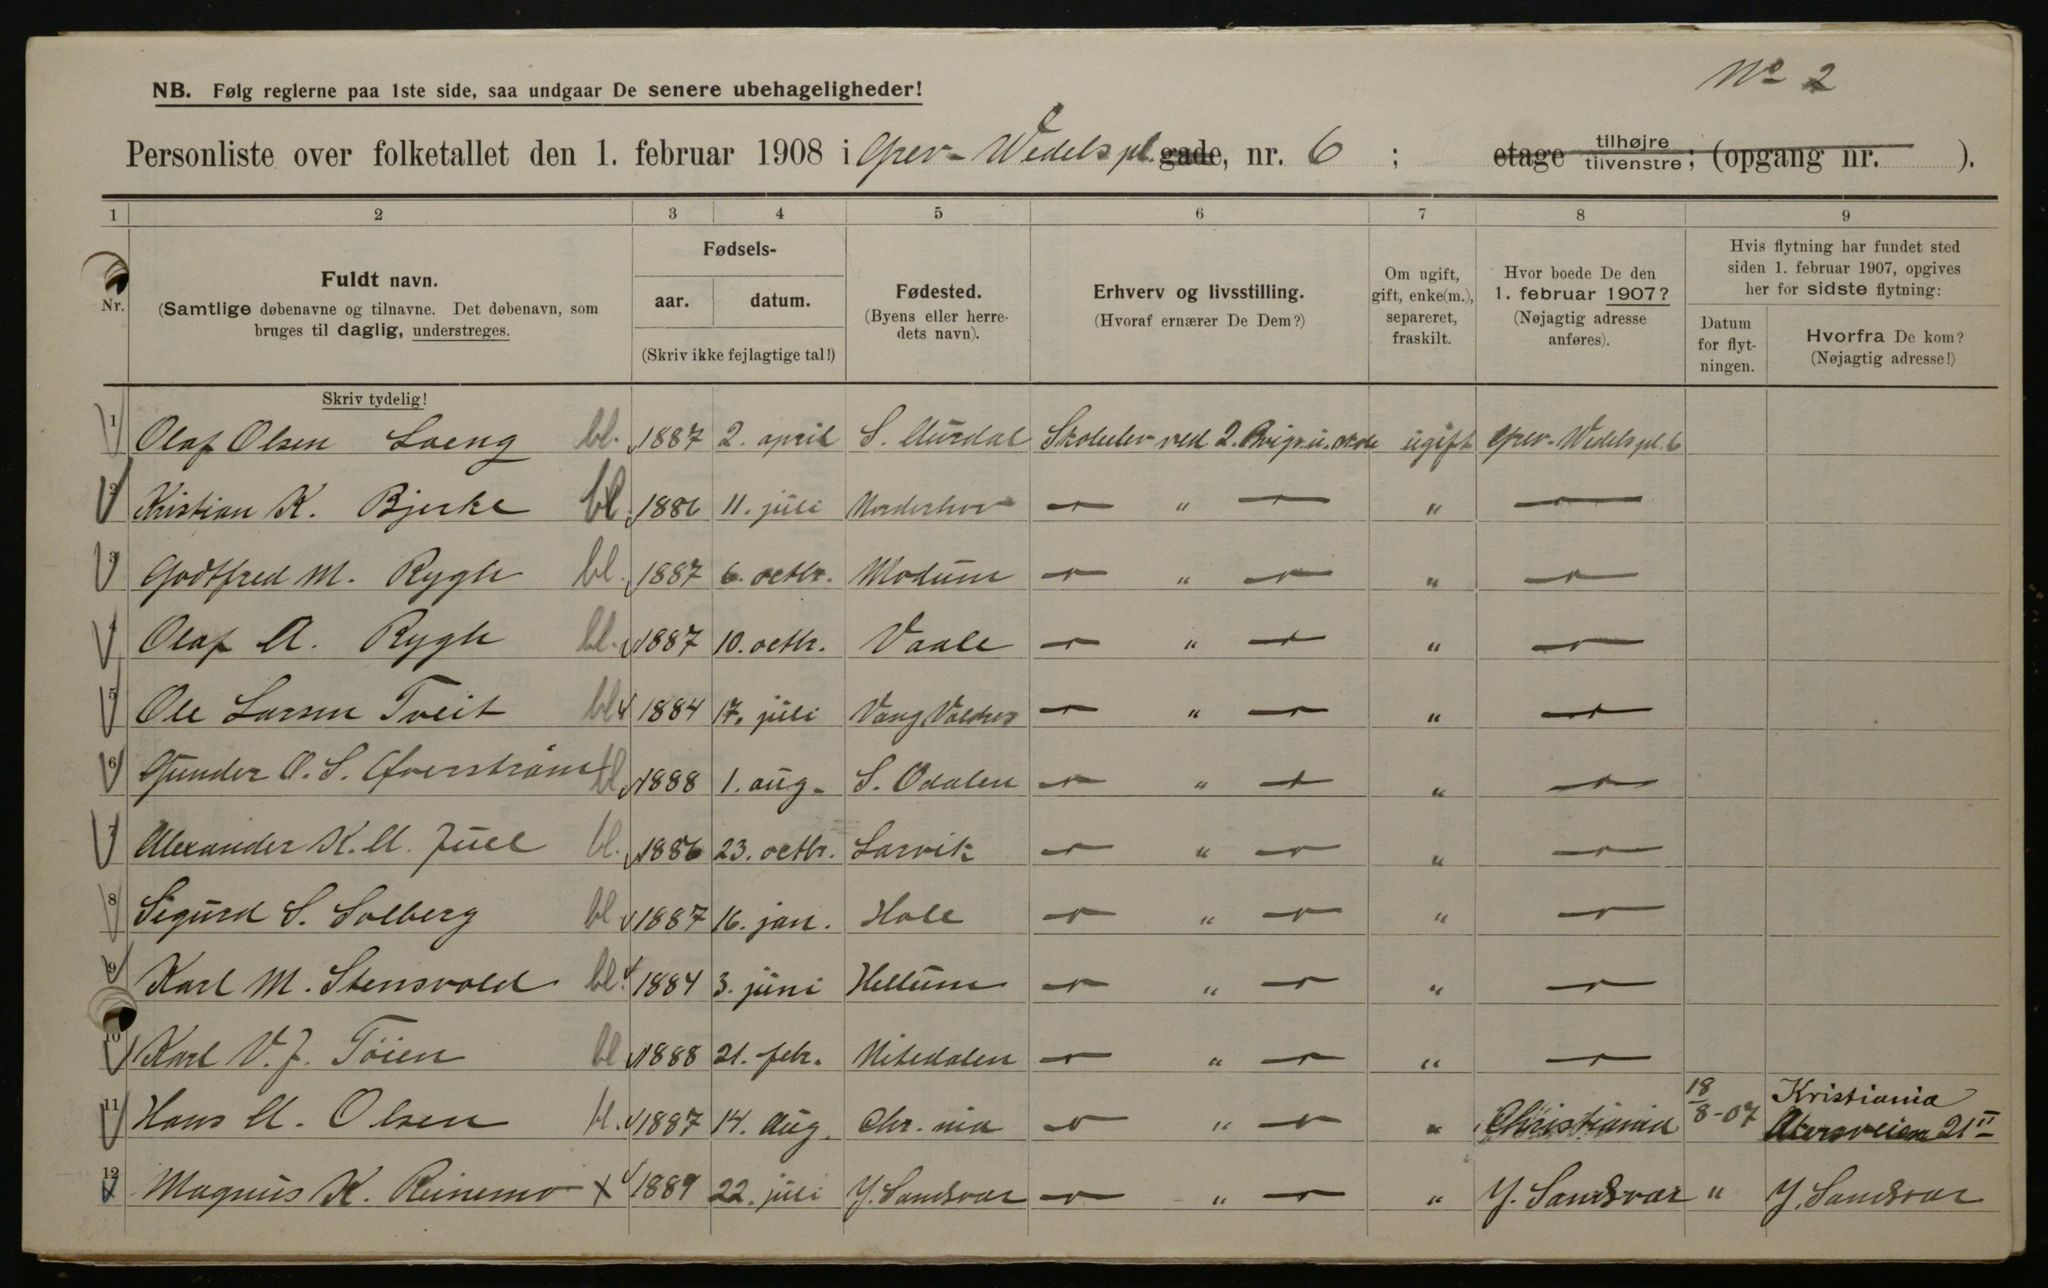 No 2
NB. Følg reglerne paa 1ste side, saa undgaar De senere ubehageligheder!
Personliste over folketallet den 1. februar 1908 i Grev-Wedels pl. gade, nr. 6 ; etage tilhøjre tilvenstre; (opgang nr. ).
1 2 3 4 5 6 7 8 9
Nr.
Fuldt navn.
(Samtlige døbenavne og tilnavne. Det døbenavn, som
bruges til daglig, understreges.
Skriv tydelig!
Fødsels-
aar. datum.
(Skriv ikke fejlagtige tal!)
Fødested.
(Byens eller herre-
dets navn).
Erhverv og livsstilling.
(Hvoraf ernærer De Dem?)
Om ugift,
gift, enke(m.),
separeret,
fraskilt.
Hvor boede De den
1. februar 1907?
(Nøjagtig adresse
anføres).
Hvis flytning har fundet sted
siden 1. februar 1907, opgives
her for sidste flytning:
Datum
for flyt-
ningen.
Hvorfra De kom?
(Nøjagtig adresse!)
1 Olaf Olsen Loeng bl. 1887 2. april S. Aurdal Skoleelev ved 2. Brig. u. skole ugift Grev-Wedels pl. 6
2 Kristian K. Bjerke bl. 1886 11. juli Norderhov — " — " —
3 Godtfred M. Rygh bl. 1887 6. octbr. Modum — " — " —
4 Olaf A. Rygh bl. 1887 10. octbr. Vaale — " — " —
5 Ole Larsen Tveit bl. 1884 17. juli Vang Valdres — " — " —
6 Gunder O. S. Øverstrøm bl. 1888 1. aug. S. Odalen — " — " —
7 Alexander K. A. Juel bl. 1886 23. octbr. Larvik — " — " —
8 Sigurd S. Solberg bl. 1887 16. jan. Hole — " — " —
9 Karl M. Stensvold bl. 1884 3. juni Hellum — " — " —
10 Karl V. J. Töien bl. 1888 21. febr. Nitedalen — " — " —
11 Hans A. Olsen bl. 1887 14. Aug. Chr.nia — " — " Christiania 18/8-07 Kristiania
Akersveien 21 II
12 Magnus K. Reinemo x 1889 22. juli Y. Sandsvær — " — " Y. Sandsvær " Y. Sandsvær